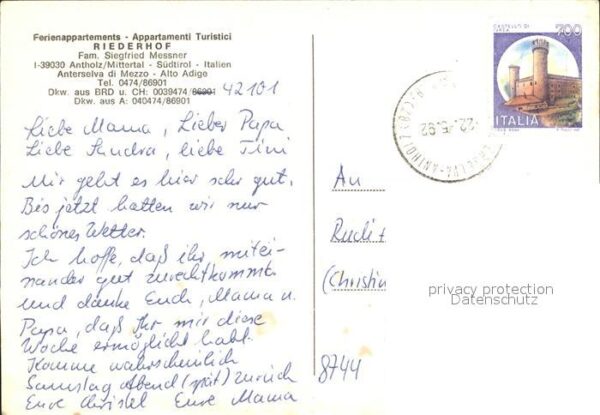 Ferienappartements - Appartamenti Turistici
RIEDERHOF
Fam. Siegfried Messner
I-39030 Antholz/Mittertal - Südtirol - Italien
Anterselva di Mezzo - Alto Adige
Tel. 0474/86901
Dkw. aus BRD u. CH: 0039474/86901 42101
Dkw. aus A: 040474/86901
Liebe Mama, Lieber Papa
Liebe Sandra, liebe Tini
Mir geht es hier sehr gut.
Bis jetzt hatten wir nur
schönes Wetter.
Ich hoffe, daß ihr mitei-
nander gut zurechtkommt
und danke Euch, Mama u.
Papa, daß Ihr mir diese
Woche ermöglicht habt.
Komme wahrscheinlich
Samstag Abend (spät) zurück
Eure Christel Eure Mama
CASTELLO DI
IVREA
700
ITALIA
22.-5.92
An
Rudi +
(Christin
privacy protection
Datenschutz
8744